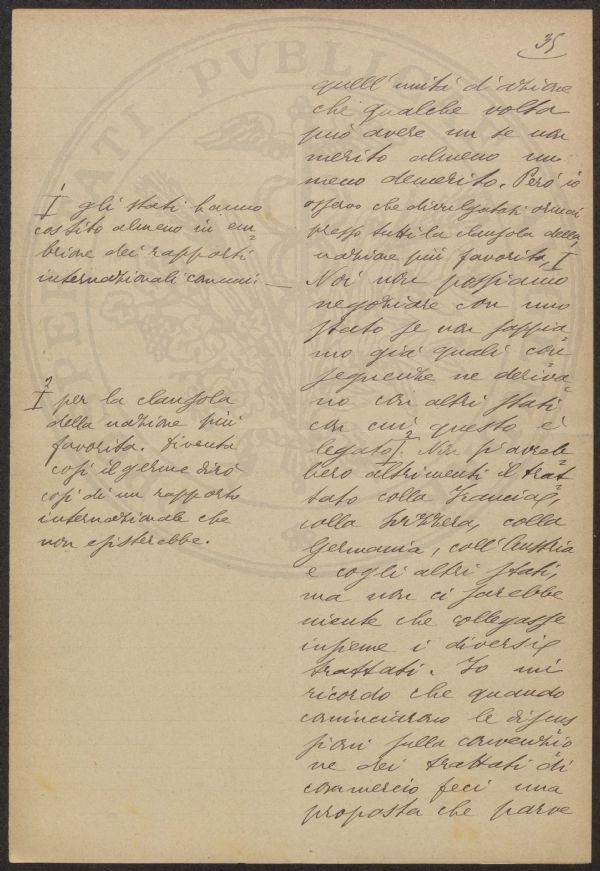 35
quell'unità d'azione
che qualche volta
può avere un se non
merito almeno un
meno demerito. Però io
osservo che divulgatasi ormai
presso tutti la clausola della
nazione più favorita, I
Noi non possiamo
negoziare con uno
stato se non sappia=
mo già quali con
seguenze ne deriva=
no con altri stati
con cui questo è
legato I². Non si avreb
bero altrimenti il trat=
tato colla Francia,
colla Svizzera, colla
Germania, coll'Austria
e cogli altri stati,
ma non ci sarebbe
niente che collegasse
insieme i diversi
trattati. Io mi
ricordo che quando
cominciarono le discus
sioni sulla convenzio=
ne dei trattati di
commercio feci una
proposta che parve
I¹ gli stati hanno
costituito almeno in em=
brione dei rapporti
internazionali comuni. —
I² per la clausola
della nazione più
favorita. Diventa
così il germe dirò
così di un rapporto
internazionale che
non esisterebbe.
PVBLIC